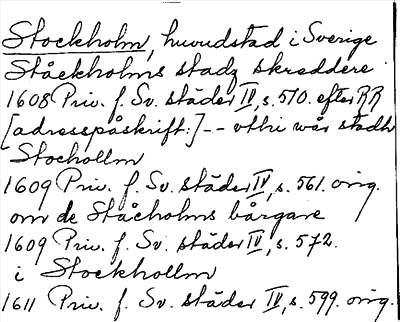 Stockholm, huvudstad i Sverige
Ståckholms stadz skreddere
1608 Priv. f. Sv. städer IV, s. 570. efter RR
[adresspåskrift:] -- vthi wår stadh
Stocholm
1609 Priv. f. Sv. städer IV, s. 561. orig.
om de Ståcholms bårgare
1609 Priv. f. Sv. städer IV, s. 572.
i Stockhollm
1611 Priv. f. Sv. städer IV, s. 599. orig.